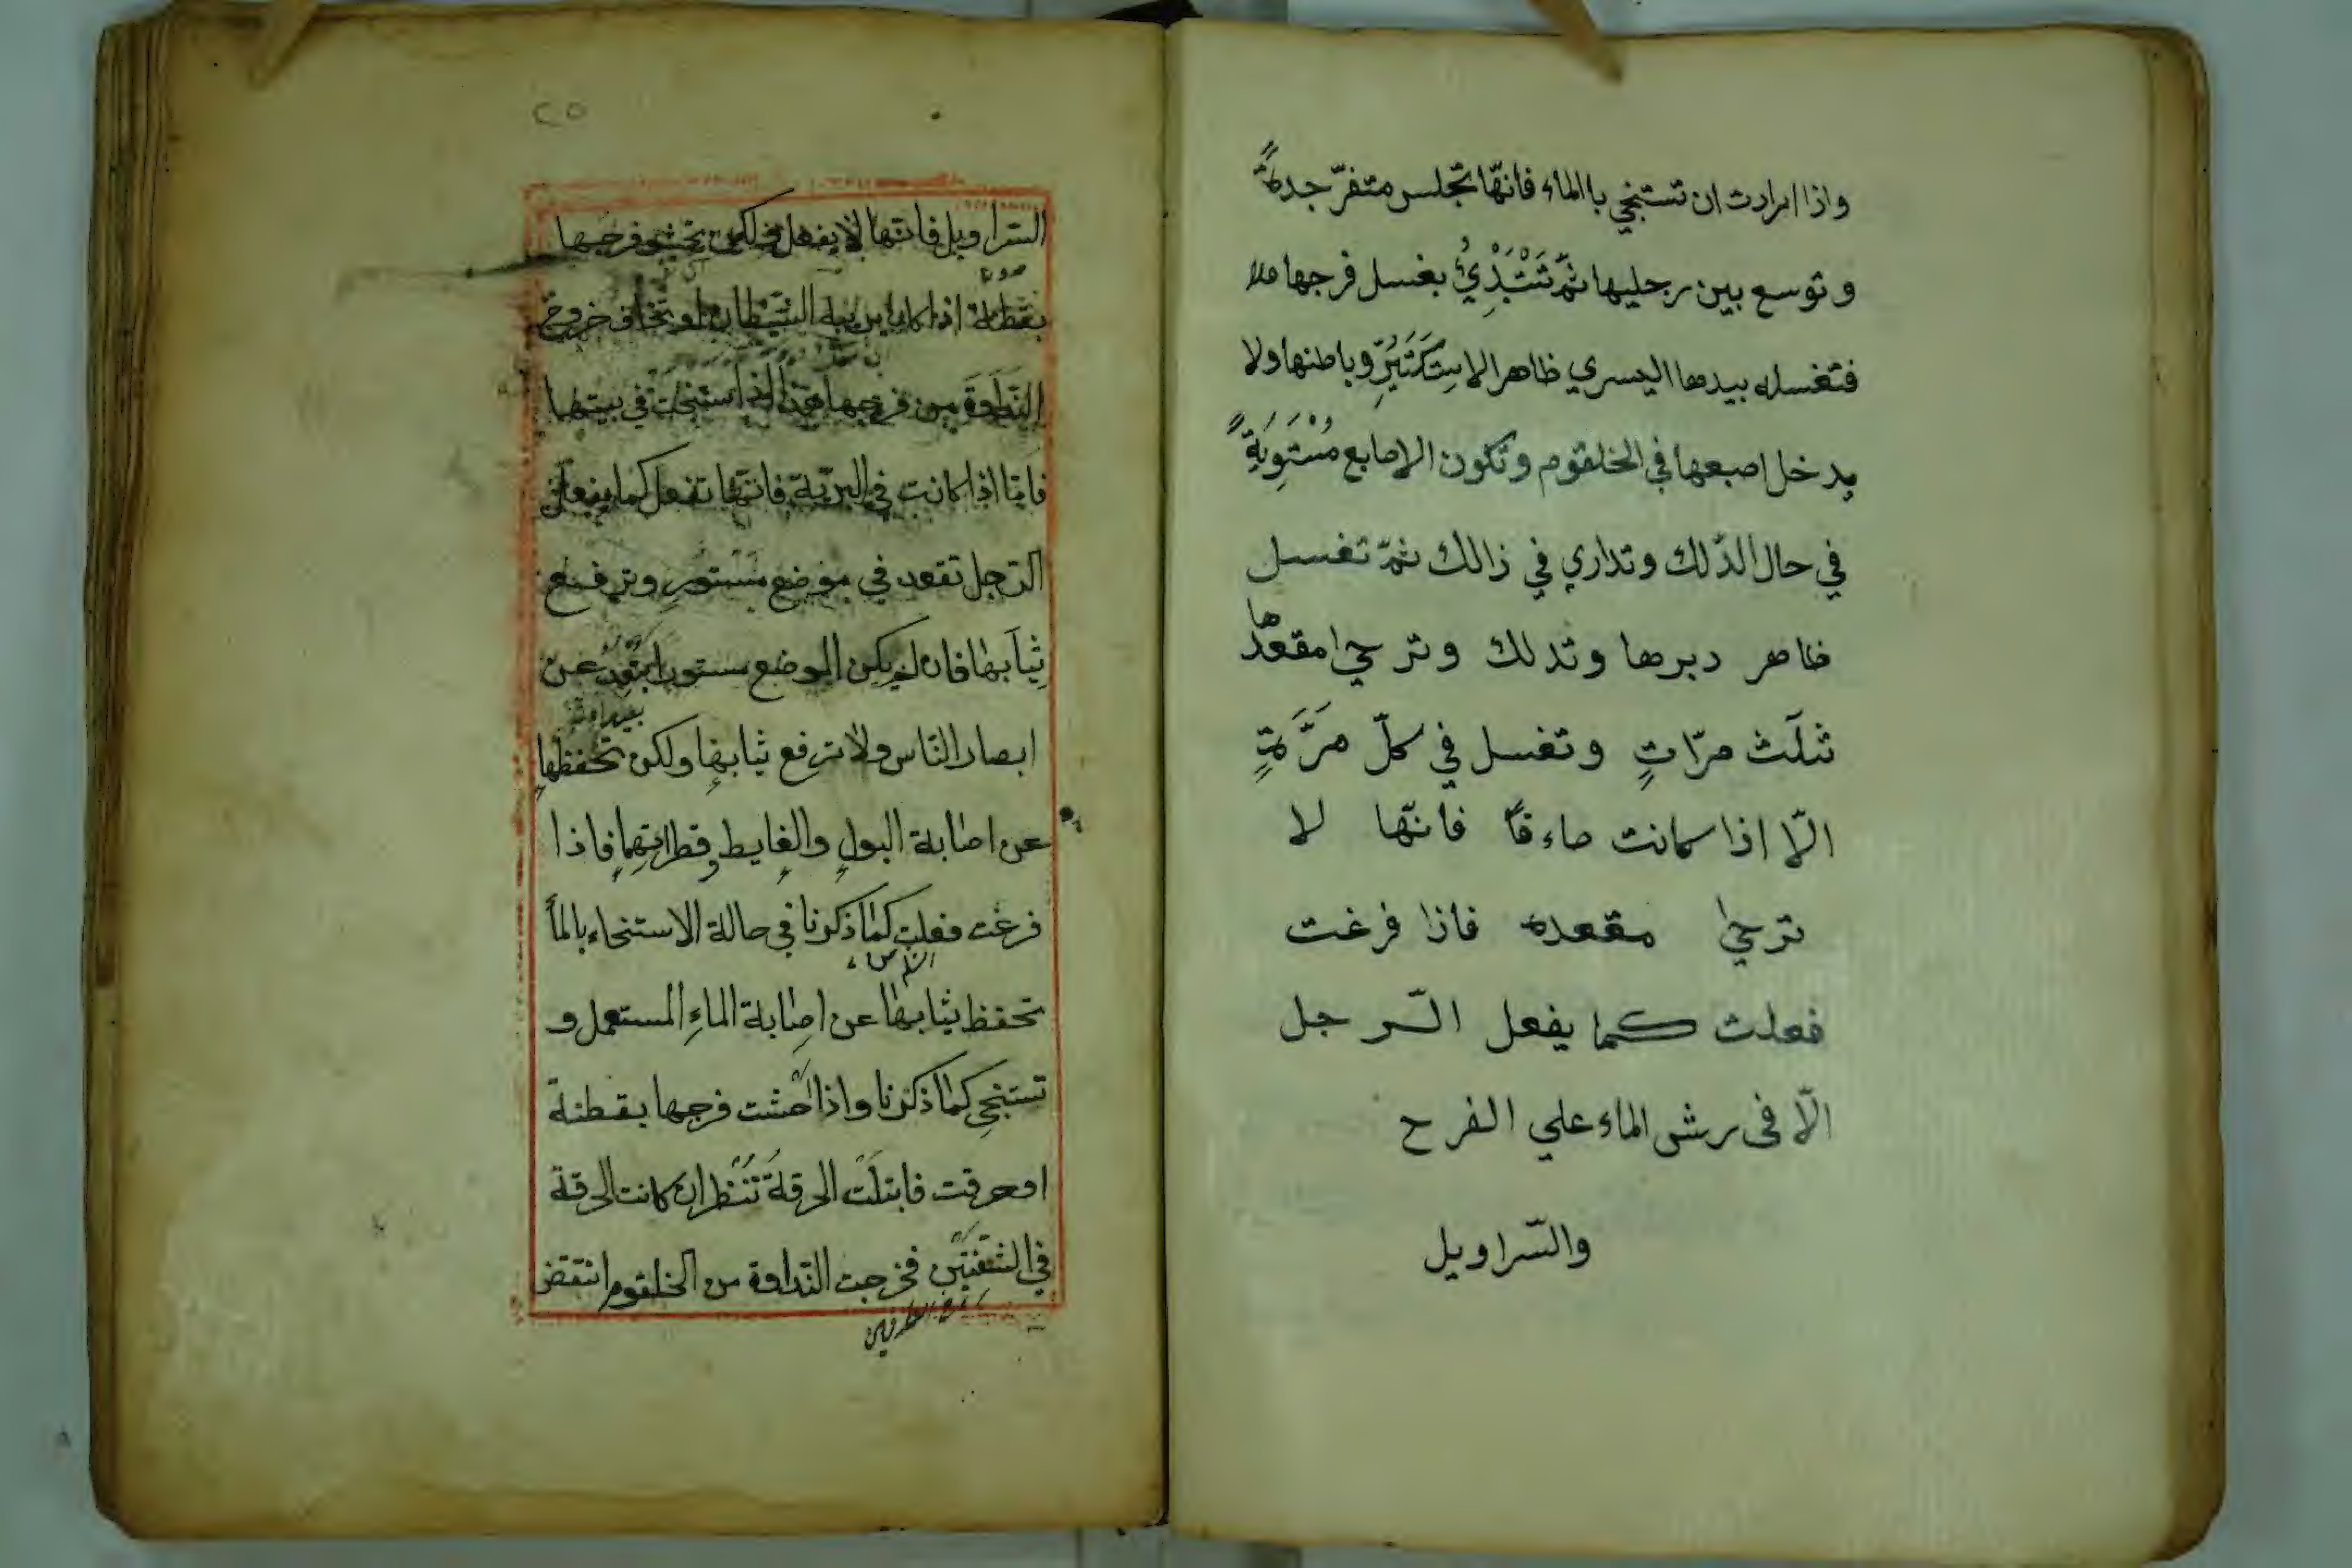 واذا ارادت ان تستنجي باالماء فانّها تجلس متفرّجدةً
وتوسع بين رجليها ثمّ تَبْتَدِئُ بغسل فرجها
فتغسله بيدها اليسري ظاهر الاسكتين وباطنها ولا
يدخل اصبعها في الخلقوم وتكون الاصابع مُسْتَوِيَةً
في حال الدّلك وتداري في ذالك ثمّ تغسل
ظاهر دبرها وتدلك وترخي مقعدها
ثلَث مرّاتٍ وتغسل في كلّ مَرَّةٍ
الّا اذا كانت صاءمًا فانّها لا
ترخي مقعده فاذا فرغت
فعلت كما يفعل الرّجل
الّا في رش الماء علي الفرح
والسّراويل
٢٥
السّراويل فانّها لا يفعل ولكن تحشو فرجها
بقطنة اذا كان يريبه الشّيطان او تخاف خروج
النّداوة من فرجها هذا اذا استنجت في بيتها
فامّا اذا كانت في البرّيّة فانّها تفعل كما يفعل
الرّجل تقعد في موضع مَسْتُورٍ وترفع
ثيابها فان لم يكن الموضع مستورا تبعد عن
ابصار النّاس ولا ترفع ثيابها ولكن تحفظها
عن اصابة البولِ والغايطِ وقطراتهما فاذا
فرغت فعلت كما ذكرنا في حالة الاستنجاء بالماء
تحفظ ثيابها عن اصابة الماءِ المستعمل و
تستنجي كما ذكرنا واذا حشت فرجها بقطنة
او حرقت فابتلّت الحرقةُ تُنْظر ان كانت الحرقة
في الشفتين فخرجت النّداوة من الخلقوم انتقض